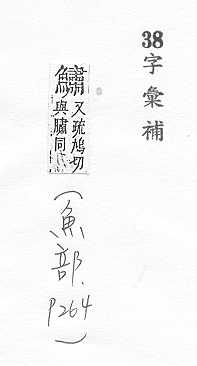 38
字彙補
鱐
又疏鳩切
與同
(魚部.
P264)